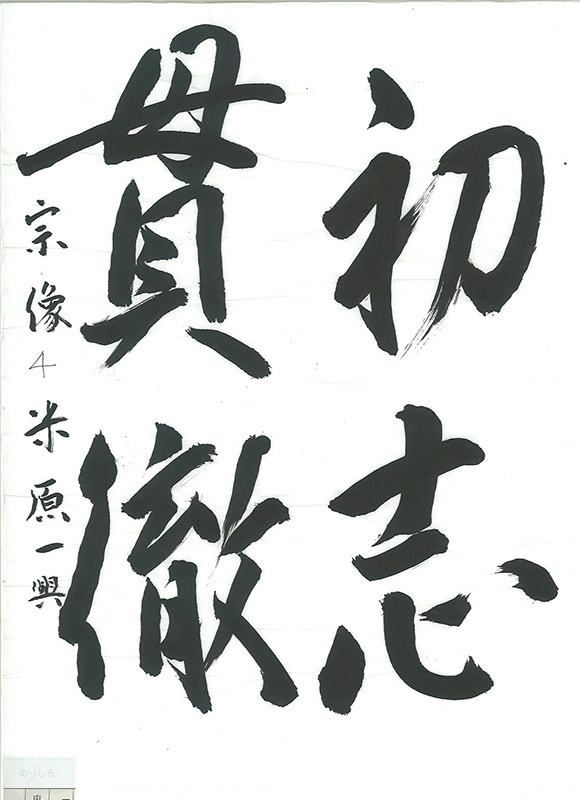 初志
貫徹
宗像4 米原一興
のりしろ